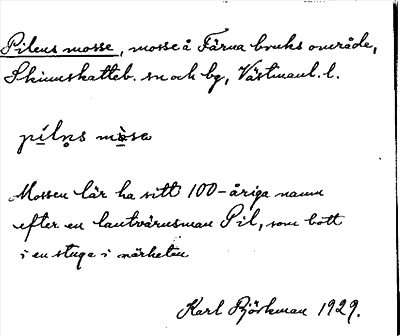 Pilens mosse, mosse å Färna bruks område,
Skinnskatteb. sn och by, Västmanl. l.
pílns mòsa
Mossen lär ha sitt 100-åriga namn
efter en lantvärnsman Pil, som bott
i en stuga i närheten
Karl Björkman 1929.